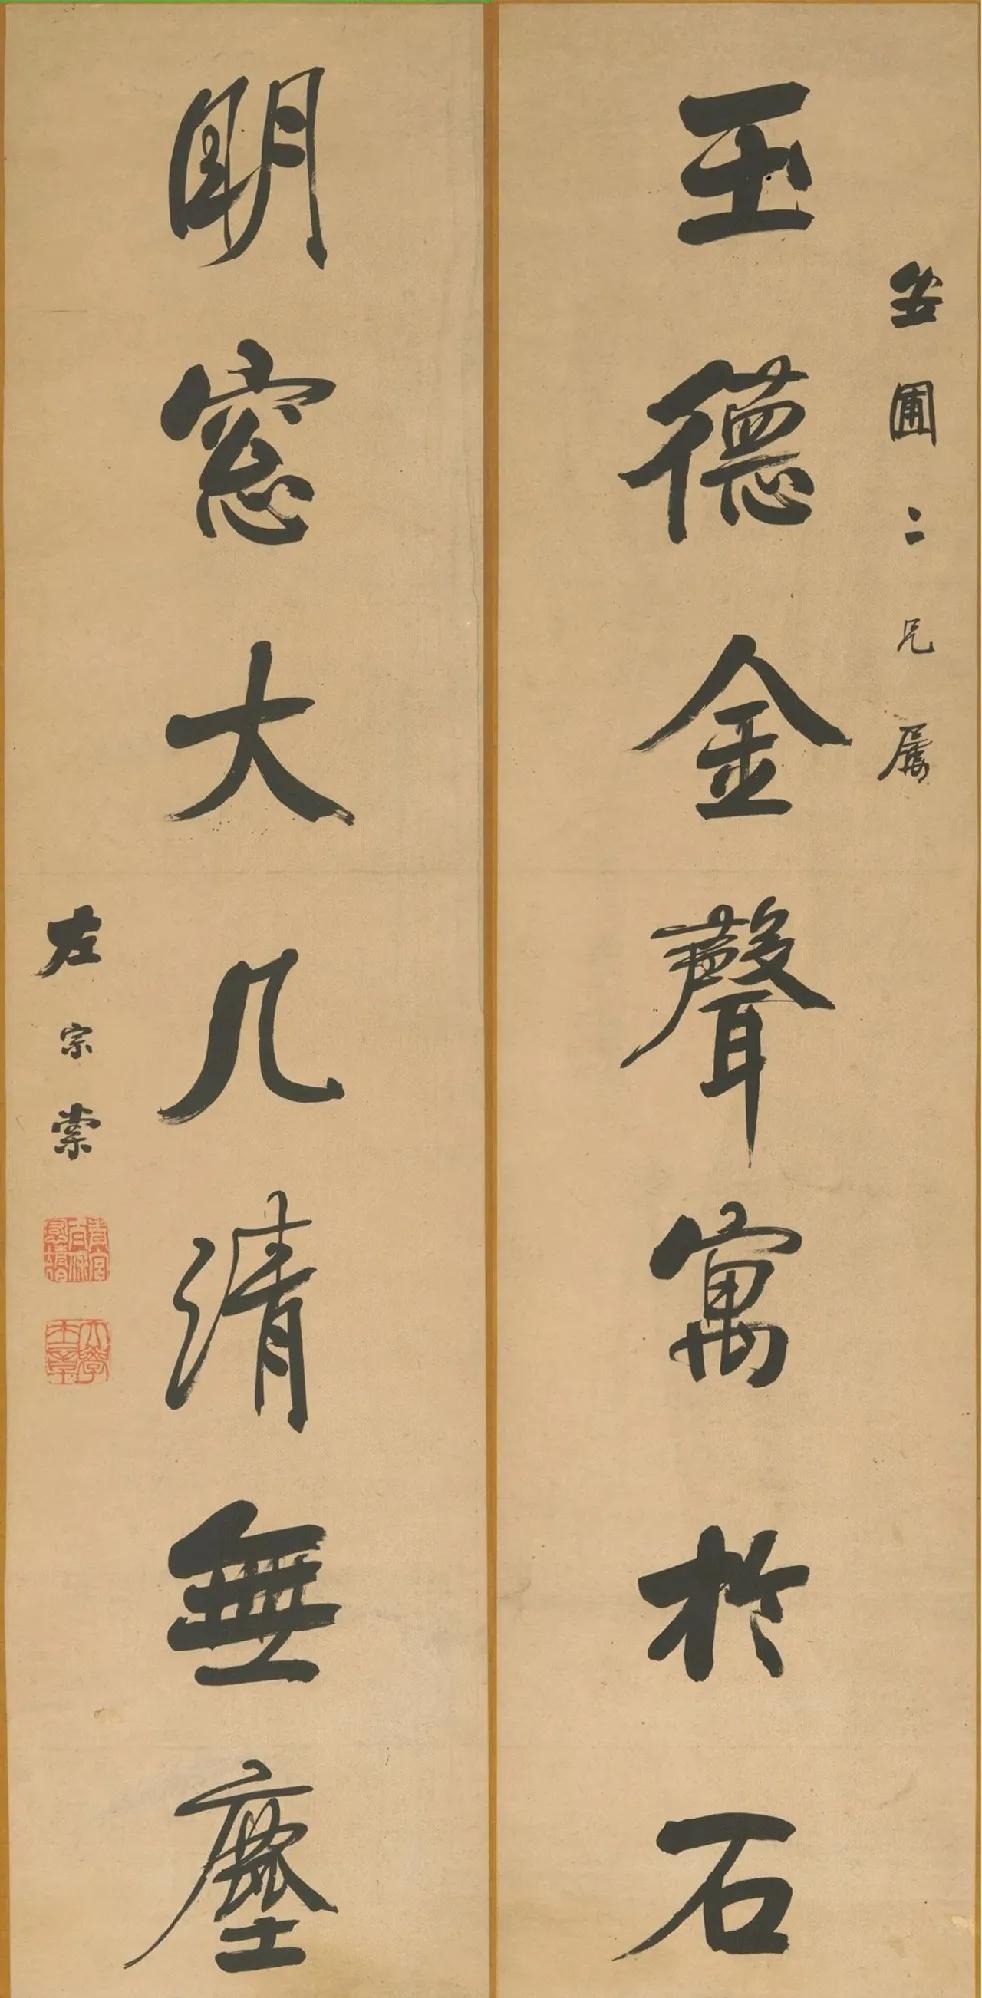 圃二兄屬
玉德金聲寓於石
明窻大几清無塵
左宗棠
大學士章